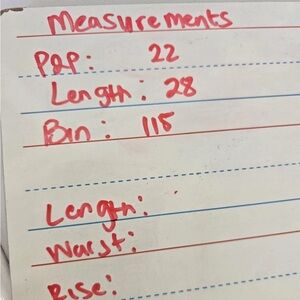 Measurements
P2P: 22
Length: 28
Bin: 115
Length:
Waist:
Rise: